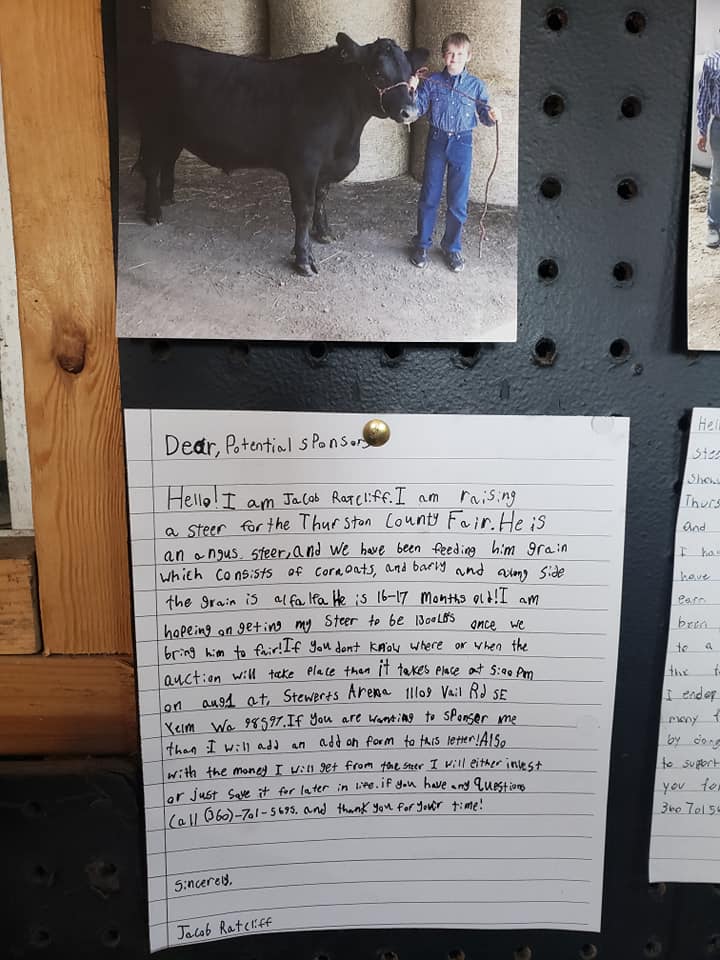 Dear, Potential sponsors
Hello! I am Jacob Ratcliff. I am raising
a steer for the Thurston County Fair. He is
an angus steer, and we have been feeding him grain
which consists of corn, oats, and barly and along side
the grain is alfalfa. He is 16-17 months old! I am
hopeing on geting my steer to be 1300 LBS once we
bring him to fair! If you dont know where or when the
auction will take place than it takes place at 5:00 Pm
on aug 1 at, Stewerts Arena 11109 Vail Rd SE
Yelm Wa 98597. If you are wanting to sponser me
than I will add an add on form to this letter! Also
with the money I will get from the steer I will either invest
or just save it for later in life. if you have any questions
Call (360)-701-5695. and thank you for your time!
Sincerely,
Jacob Ratcliff
Hell
stee
show
Thurs
and
I hav
have
earn
been
to a
the f
I endep
many f
by doing
to support
you for
360 701 5